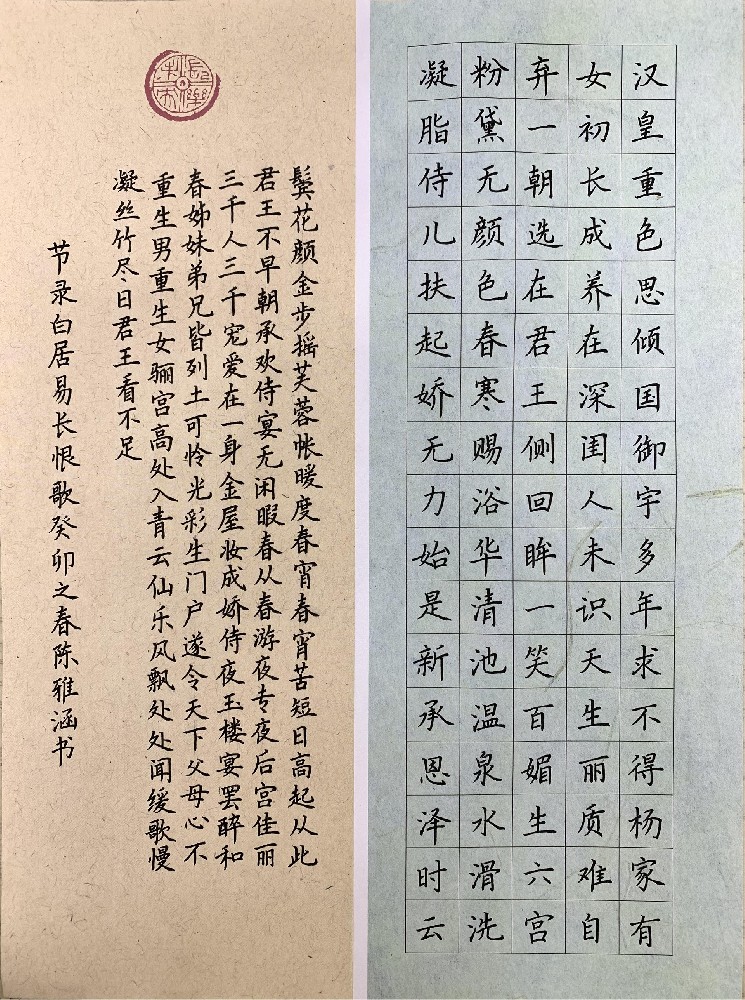 汉皇重色思倾国御宇多年求不得杨家有
女初长成养在深闺人未识天生丽质难自
弃一朝选在君王侧回眸一笑百媚生六宫
粉黛无颜色春寒赐浴华清池温泉水滑洗
凝脂侍儿扶起娇无力始是新承恩泽时云
鬓花颜金步摇芙蓉帐暖度春宵春宵苦短日高起从此
君王不早朝承欢侍宴无闲暇春从春游夜专夜后宫佳丽
三千人三千宠爱在一身金屋妆成娇侍夜玉楼宴罢醉和
春姊妹弟兄皆列土可怜光彩生门户遂令天下父母心不
重生男重生女骊宫高处入青云仙乐风飘处处闻缓歌慢
凝丝竹尽日君王看不足
节录白居易长恨歌癸卯之春陈雅涵书
長樂未央